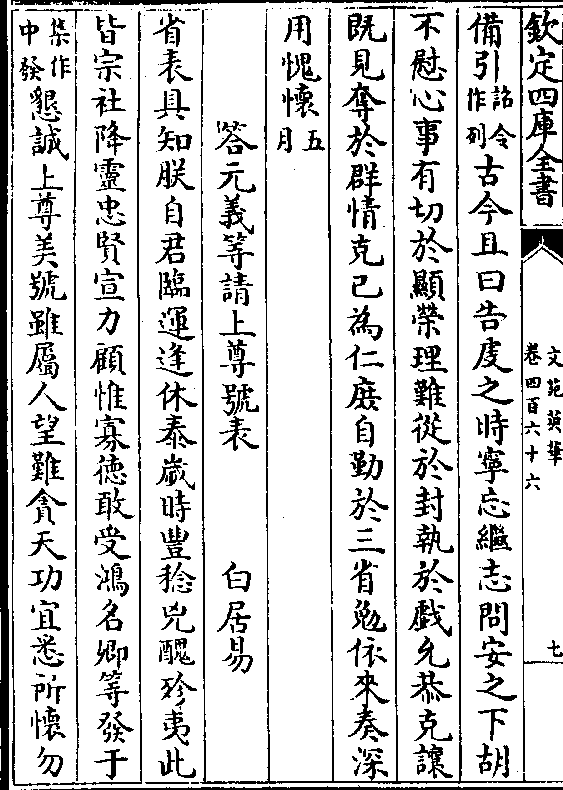 欽定四庫全書
文苑英華
卷四百六十六
七
備引詔令作列古今且曰告虔之時寧忘繼志問安之下胡
不慰心事有切於顯榮理難從於封執於戲允恭克讓
既見奪於群情克己為仁庶自勤於三省勉依來奏深
用愧懷五月
答元義等請上尊號表 白居易
省表具知朕自君臨運逢休泰歲時豐稔兇醜殄夷此
皆宗社降靈忠賢宣力顧惟寡徳敢受鴻名卿等發于
集作中發懇誠上尊美號雖屬人望難貪天功宜悉所懷勿